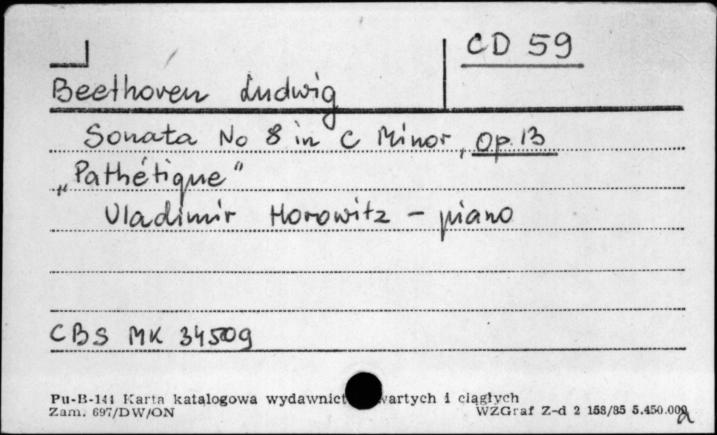 CD 59
Beethoven Ludwig
Sonata No 8 in C Minor, Op. 13
„Pathétique”
Vladimir Horowitz – piano
CBS MK 34509
Pu-B-141 Karta katalogowa wydawnict wartych i ciągłych
Zam. 697/DW/ON WZGraf Z-d 2 158/85 5.450.000